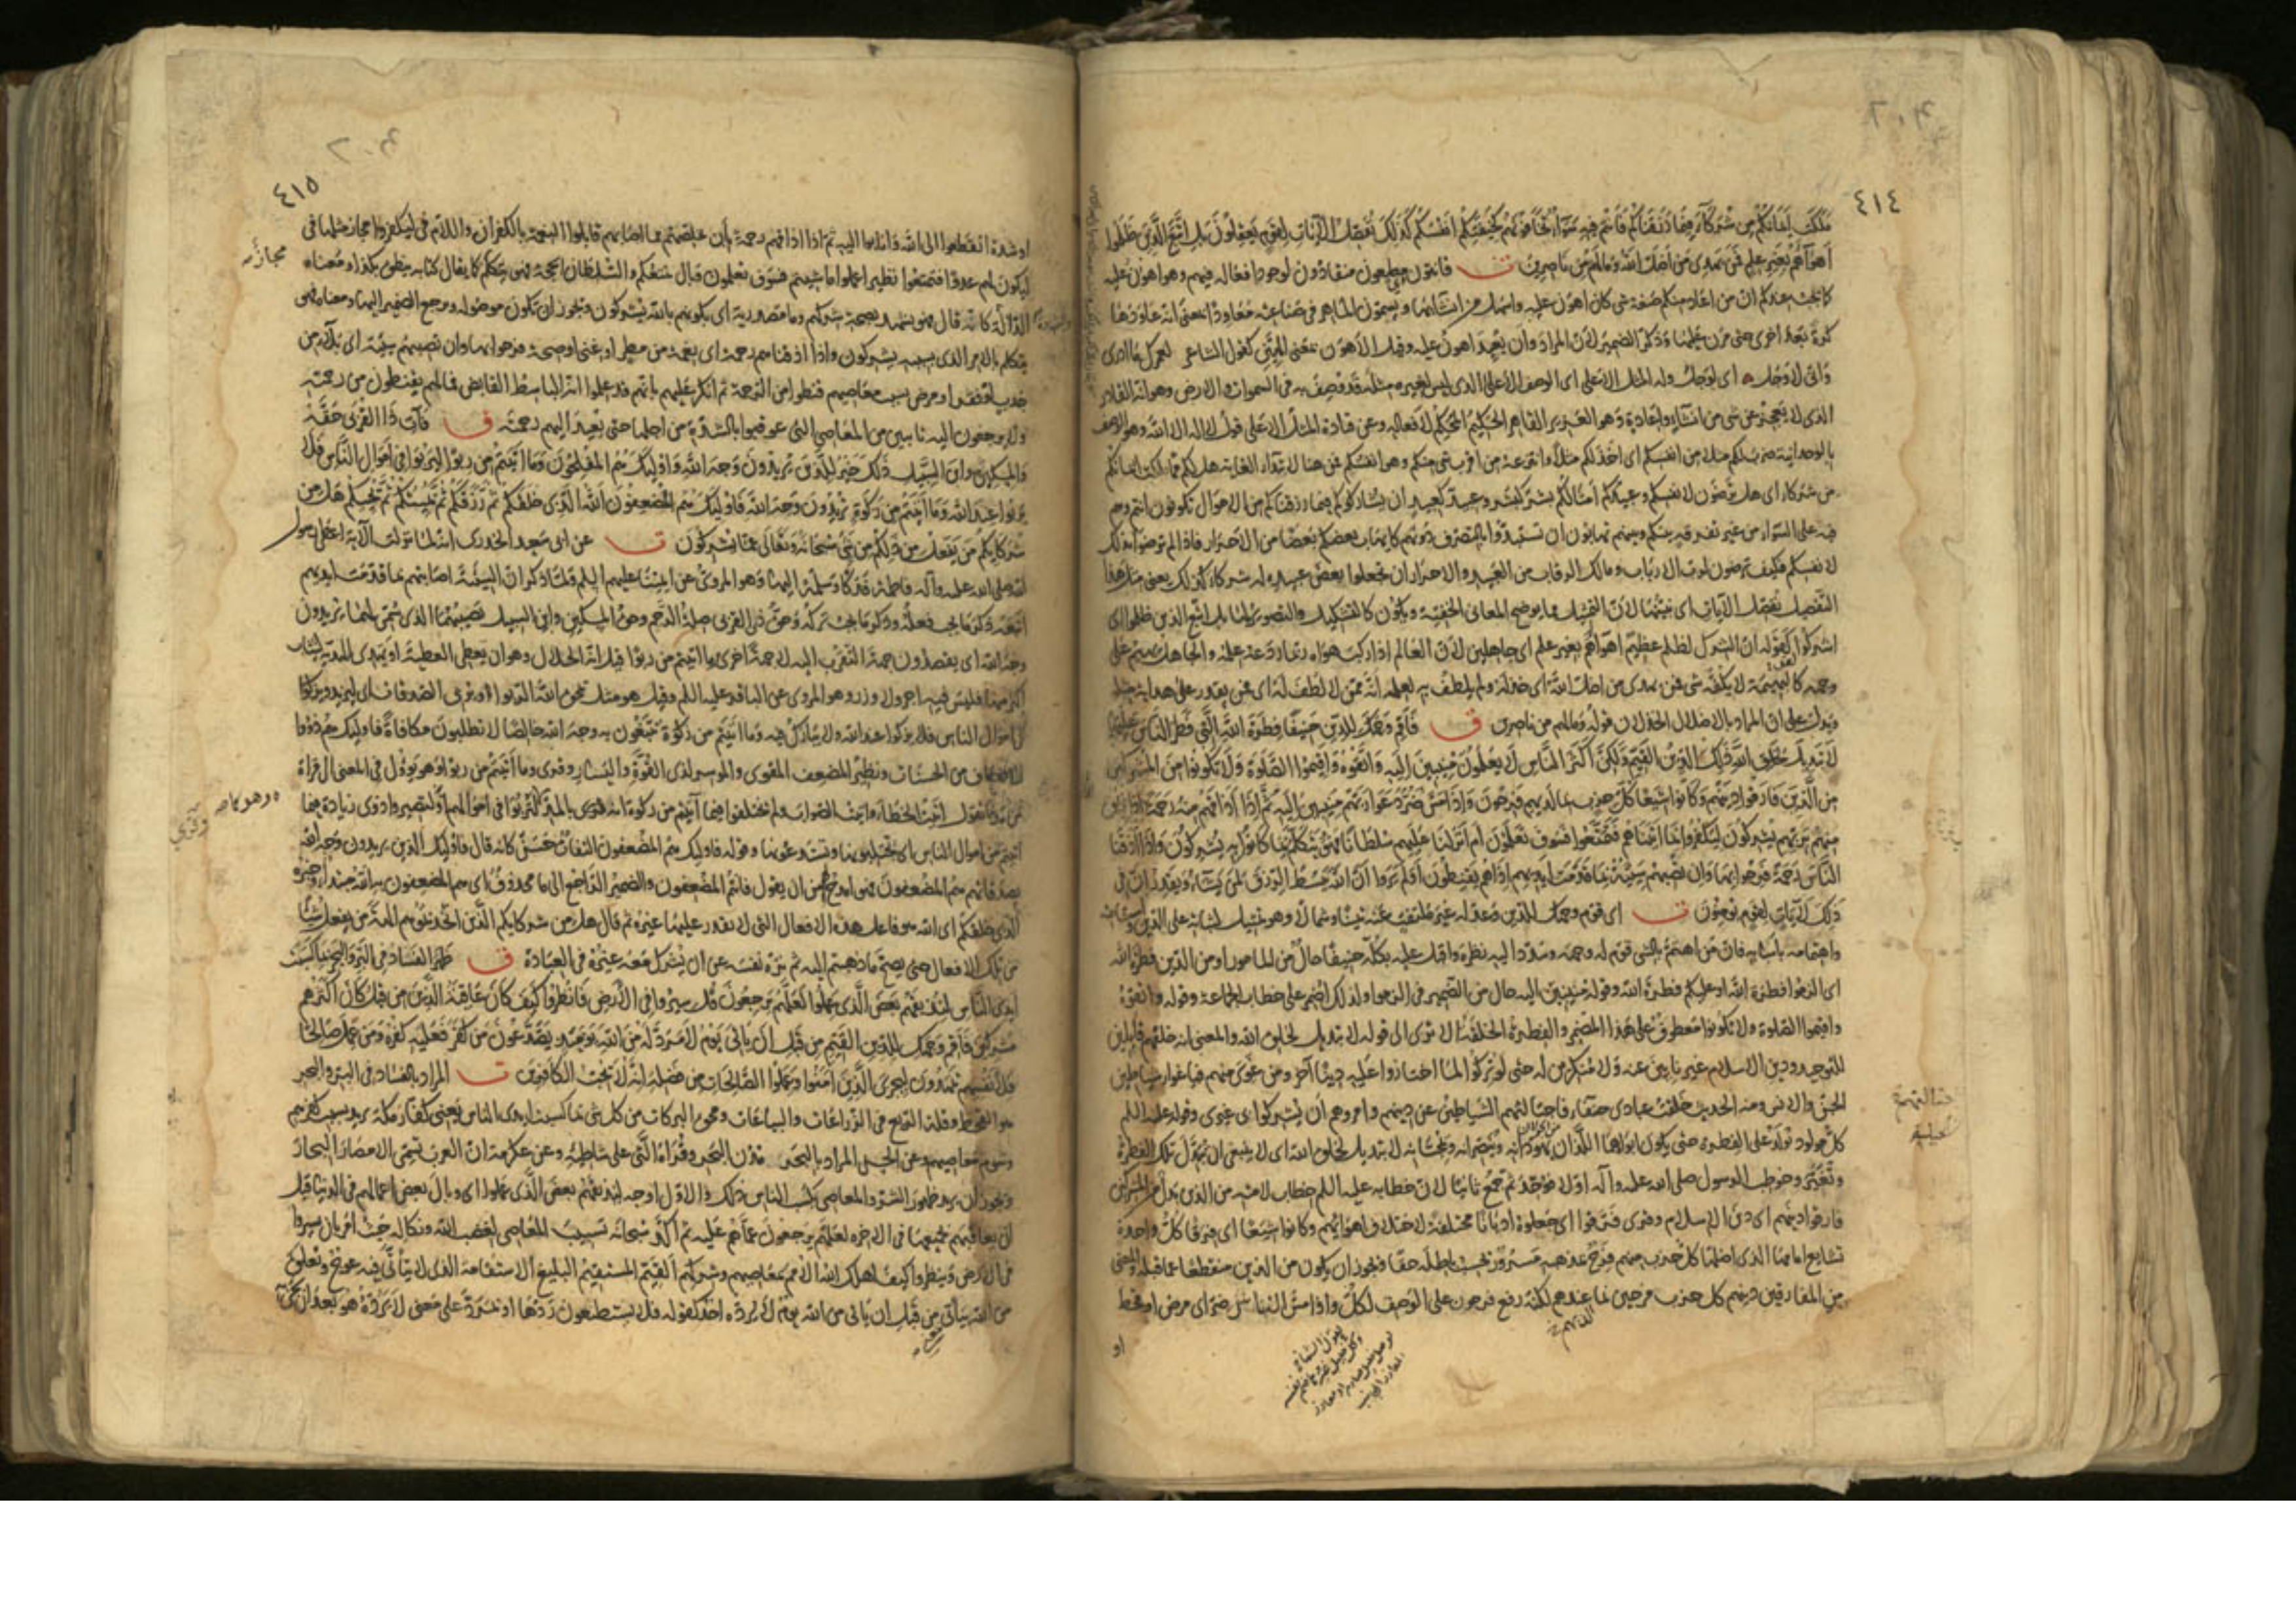 ٤١٤
ملكت ايمانكم من شركاء فيما رزقناكم فانتم فيه سواء تخافونهم كخيفتكم انفسكم كذلك نفصل الآيات لقوم يعقلون بل اتبع الذين ظلموا
اهواءهم بغير علم فمن يهدى من اضل الله وما لهم من ناصرين ت قانتون مطيعون منقادون لوجود افعاله فيهم وهو اهون عليه
كما يجب عندكم ان من اعاد منكم صنعة شى كان اهون عليه واسهل من انشائها ويسمون الماهر فى صناعته معاودا بمعنى انه عاودها
كرة بعد اخرى حتى مرن عليها وذكر الضمير لان المراد وان يعيده اهون عليه وقيل الاهون بمعنى الهين كقول الشاعر لعمرك ما ادرى
وانى لاوجل اى لوجل وله المثل الاعلى اى الوصف الاعلى الذى ليس لغيره مثله قد وصف به فى السموات والارض وهو انه القادر
الذى لا يعجز عن شى من انشاء واعادة وهو العزيز القاهر الحكيم المحكم لافعاله وعن قتادة المثل الاعلى قول لا اله الا الله وهو الوصف
بالوحدانية ضرب لكم مثلا من انفسكم اى اخذ لكم مثلا وانتزعه من اقرب شى منكم وهو انفسكم فمن هنا لابتداء الغاية هل لكم مما ملكت ايمانكم
من شركاء اى هل ترضون لانفسكم وعبيدكم امثالكم بشر كبشر وعبيد كعبيد ان يشاركوكم فيما رزقناكم من الاموال تكونون انتم وهم
فيه على السواء من غير تفرقة بينكم وبينهم تهابون ان تستبدوا بالتصرف دونهم كما يهاب بعضكم بعضا من الاحرار فاذا لم ترضوا بذلك
لانفسكم فكيف ترضون لرب الارباب ومالك الرقاب من العبيد والاحرار ان تجعلوا بعض عبيده له شركاء كذلك يعنى مثل هذا
التفصيل نفصل الآيات اى نبينها لان التمثيل مما يوضح المعانى الخفية ويكون كالتشكيل والتصوير لها بل اتبع الذين ظلموا اى
اشركوا كقوله ان الشرك لظلم عظيم اهواءهم بغير علم اى جاهلين لان العالم اذا ركب هواه ربما ردعه علمه والجاهل يهيم على
وجهه كالبهيمة لا يكفه شى فمن يهدى من اضل الله اى خذله ولم يلطف به لعلمه انه ممن لا لطف له اى فمن يقدر على هداية مثله
ويدل على ان المراد بالاضلال الخذلان قوله وما لهم من ناصرين ق فاقم وجهك للدين حنيفا فطرة الله التى فطر الناس عليها
لا تبديل لخلق الله ذلك الدين القيم ولكن اكثر الناس لا يعلمون منيبين اليه واتقوه واقيموا الصلوة ولا تكونوا من المشركين
من الذين فارقوا دينهم وكانوا شيعا كل حزب بما لديهم فرحون واذا مس الناس ضر دعوا ربهم منيبين اليه ثم اذا اذاقهم منه رحمة اذا فريق
منهم بربهم يشركون ليكفروا بما آتيناهم فتمتعوا فسوف تعلمون ام انزلنا عليهم سلطانا فهو يتكلم بما كانوا به يشركون واذا اذقنا
الناس رحمة فرحوا بها وان تصبهم سيئة بما قدمت ايديهم اذا هم يقنطون اولم يروا ان الله يبسط الرزق لمن يشاء ويقدر ان فى
ذلك لآيات لقوم يؤمنون ت اى قوم وجهك للدين وعدله غير ملتفت عنه يمينا وشمالا وهو تمثيل لثباته على الدين
واهتمامه باسبابه فان من اهتم بالشى قوم له وجهه وسدد اليه نظره واقبل عليه بكله حنيفا حال من المامور او من الدين فطرة الله
اى الزموا فطرة الله او عليكم فطرة الله وقوله منيبين اليه حال من الضمير فى الزموا ولذلك اضمر على خطاب الجماعة وقوله واتقوه
واقيموا الصلوة ولا تكونوا معطوف على هذا المضمر والفطرة الخلقة الا ترى الى قوله لا تبديل لخلق الله والمعنى انه خلقهم قابلين
للتوحيد ودين الاسلام غير نابين عنه ولا منكرين له حتى لو تركوا لما اختاروا عليه دينا آخر ومن غوى منهم فباغواء شياطين
الجن والانس ومنه الحديث خلقت عبادى حنفاء فاجتالتهم الشياطين عن دينهم وامروهم ان يشركوا بى غيرى وقوله عليه السلم
كل مولود يولد على الفطرة حتى يكون ابواه هما اللذان يهودانه وينصرانه ويمجسانه لا تبديل لخلق الله اى لا ينبغى ان تبدل تلك الفطرة
وتغير وخوطب الرسول صلى الله عليه وآله اولا فوحد ثم جمع ثانيا لان خطابه عليه السلم خطاب لامته من الذين بدل من المشركين
فارقوا دينهم اى دين الاسلام وقرى فرقوا اى جعلوه اديانا مختلفة لاختلاف اهوائهم وكانوا شيعا اى فرقا كل واحدة
تشايع امامها الذى اضلها كل حزب منهم فرح بمذهبه مسرور يحسب باطله حقا ويجوز ان يكون من الذين منقطعا عما قبله والمعنى
من المفارقين دينهم كل حزب فرحين بما عندهم لكنه رفع فرحون على الوصف لكل واذا مس الناس ضر اى مرض او قحط
او
٤١٥
او شدة انقطعوا الى الله وانابوا اليه ثم اذا اذاقهم رحمة بان خلصهم مما اصابهم قابلوا النعمة بالكفران واللام فى ليكفروا مجاز مثلها فى
ليكون لهم عدوا فتمتعوا نظير اعملوا ما شئتم فسوف تعلمون وبال تمتعكم والسلطان الحجة فهو يتكلم كما يقال كتابه ينطق بكذا ومعناه
الدلالة كانه قال فهو يشهد بصحة شركهم وما مصدرية اى بكونهم بالله يشركون ويجوز ان تكون موصولة ويرجع الضمير اليها ومعناه فهو
يتكلم بالامر الذى بسببه يشركون واذا اذقناهم رحمة اى نعمة من مطر او غنى او صحة فرحوا بها وان تصبهم سيئة اى بلاء من
جدب او فقر او مرض بسبب معاصيهم قنطوا من الرحمة ثم انكر عليهم بانهم قد علموا انه الباسط القابض فما لهم يقنطون من رحمته
ولا يرجعون اليه تائبين من المعاصى التى عوقبوا بالشدة من اجلها حتى يعيد اليهم رحمته ق فآت ذا القربى حقه
والمسكين وابن السبيل ذلك خير للذين يريدون وجه الله واولئك هم المفلحون وما آتيتم من ربوا ليربوا فى اموال الناس فلا
يربوا عند الله وما آتيتم من زكوة تريدون وجه الله فاولئك هم المضعفون الله الذى خلقكم ثم رزقكم ثم يميتكم ثم يحييكم هل من
شركائكم من يفعل من ذلكم من شى سبحانه وتعالى عما يشركون ت عن ابى سعيد الخدرى انه لما نزلت الآية اعطى رسول
الله صلى الله عليه وآله فاطمة فدكا وسلمه اليها وهو المروى عن ائمتنا عليهم السلم ولما ذكر ان السيئة اصابتهم بما قدمت ايديهم
اتبعه ذكر ما يجب فعله وذكر ما يجب تركه وحق ذى القربى صلة الرحم وحق المسكين وابن السبيل نصيبهما الذى سمى لهما يريدون
وجه الله اى يقصدون جهة التقرب اليه لا جهة اخرى وما آتيتم من ربوا قيل انه الحلال وهو ان يعطى العطية او يهدى الهدية ليثاب
اكثر منها فليس فيه اجر ولا وزر وهو المروى عن الباقر عليه السلم وقيل هو مثل يمحق الله الربوا ويربى الصدقات اى ليزيد ويزكوا
فى اموال الناس فلا يزكوا عند الله ولا يبارك فيه وما آتيتم من زكوة تبتغون به وجه الله خالصا لا تطلبون مكافاة فاولئك هم ذووا
الاضعاف من الحسنات ونظير المضعف المقوى والموسر لذى القوة واليسار وقرى وما اتيتم من ربوا وهو يؤل فى المعنى الى قراءة
من مد كما تقول اتيت الخطاء واتيت الصواب ولم يختلفوا فيما آتيتم من زكوة انه
وهو كما
وقرى
مجازه
الذى خلقكم اى الله هو فاعل هذه الافعال التى لا يقدر عليها غيره ثم قال هل من شركائكم الذين اتخذتموهم آلهة من يفعل شيئا
من تلك الافعال حتى يصح ما ذهبتم اليه ثم نزه نفسه عن ان يشرك معه غيره فى العبادة ق ظهر الفساد فى البر والبحر بما كسبت
ايدى الناس ليذيقهم بعض الذى عملوا لعلهم يرجعون قل سيروا فى الارض فانظروا كيف كان عاقبة الذين من قبل كان اكثرهم
مشركين فاقم وجهك للدين القيم من قبل ان ياتى يوم لا مرد له من الله يومئذ يصدعون من كفر فعليه كفره ومن عمل صالحا
فلانفسهم يمهدون ليجزى الذين آمنوا وعملوا الصالحات من فضله انه لا يحب الكافرين ت المراد بالفساد فى البر والبحر
هو القحط وقلة الريع فى الزراعات والبياعات ومحق البركات من كل شى بما كسبت ايدى الناس يعنى كفار مكة يريد بسبب كفرهم
وشوم معاصيهم وعن الحسن المراد بالبحر مدن البحر وقراه التى على شاطئه وعن عكرمة ان العرب تسمى الامصار البحار
ويجوز ان يريد ظهور الشر والمعاصى بكسب الناس ذلك والاول اوجه ليذيقهم بعض الذى عملوا اى وبال بعض اعمالهم فى الدنيا قبل
ان يعاقبهم بجميعها فى الاخرة لعلهم يرجعون عما هم عليه ثم اكد سبحانه تسبيب المعاصى لغضب الله ونكاله حيث امر بان يسيروا
فى الارض وينظروا كيف اهلك الله الامم بمعاصيهم وشركهم القيم المستقيم البليغ الاستقامة الذى لا يتأتى فيه عوج وتعلق
من الله بياتى من قبل ان ياتى من الله يوم لا يرده احد كقوله فلا يستطيعون ردها او بمرد على معنى لا يرده هو بعد ان